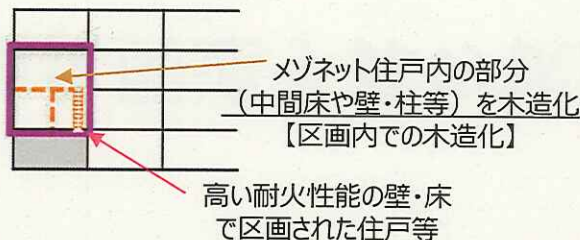 メゾネット住戸内の部分
（中間床や壁・柱等）を木造化
【区画内での木造化】
高い耐火性能の壁・床
で区画された住戸等